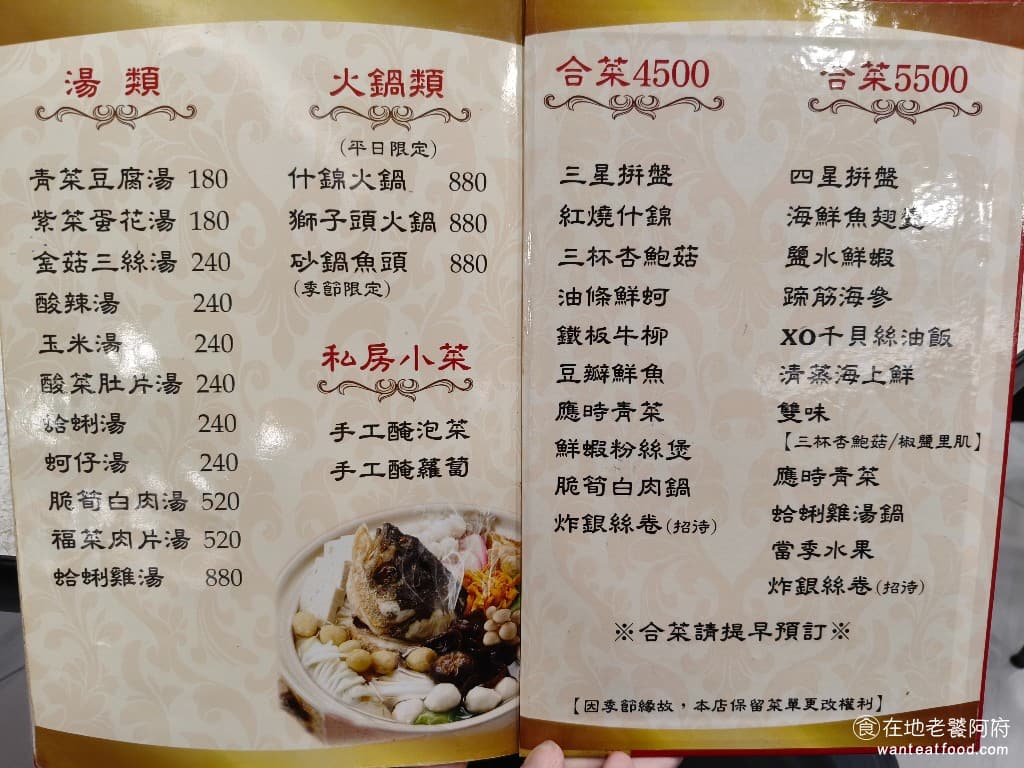 湯 類
青菜豆腐湯 180
紫菜蛋花湯 180
金菇三絲湯 240
酸辣湯 240
玉米湯 240
酸菜肚片湯 240
蛤蜊湯 240
蚵仔湯 240
脆筍白肉湯 520
福菜肉片湯 520
蛤蜊雞湯 880
火鍋類
(平日限定)
什錦火鍋 880
獅子頭火鍋 880
砂鍋魚頭 880
(季節限定)
私房小菜
手工醃泡菜
手工醃蘿蔔
合菜4500
三星拼盤
紅燒什錦
三杯杏鮑菇
油條鮮蚵
鐵板牛柳
豆瓣鮮魚
應時青菜
鮮蝦粉絲煲
脆筍白肉鍋
炸銀絲卷(招待)
合菜5500
四星拼盤
海鮮魚翅羹
鹽水鮮蝦
蹄筋海參
XO干貝絲油飯
清蒸海上鮮
雙味
【三杯杏鮑菇/椒鹽里肌】
應時青菜
蛤蜊雞湯鍋
當季水果
炸銀絲卷(招待)
※合菜請提早預訂※
【因季節緣故,本店保留菜單更改權利】
食在地老饕阿府
wanteatfood.com